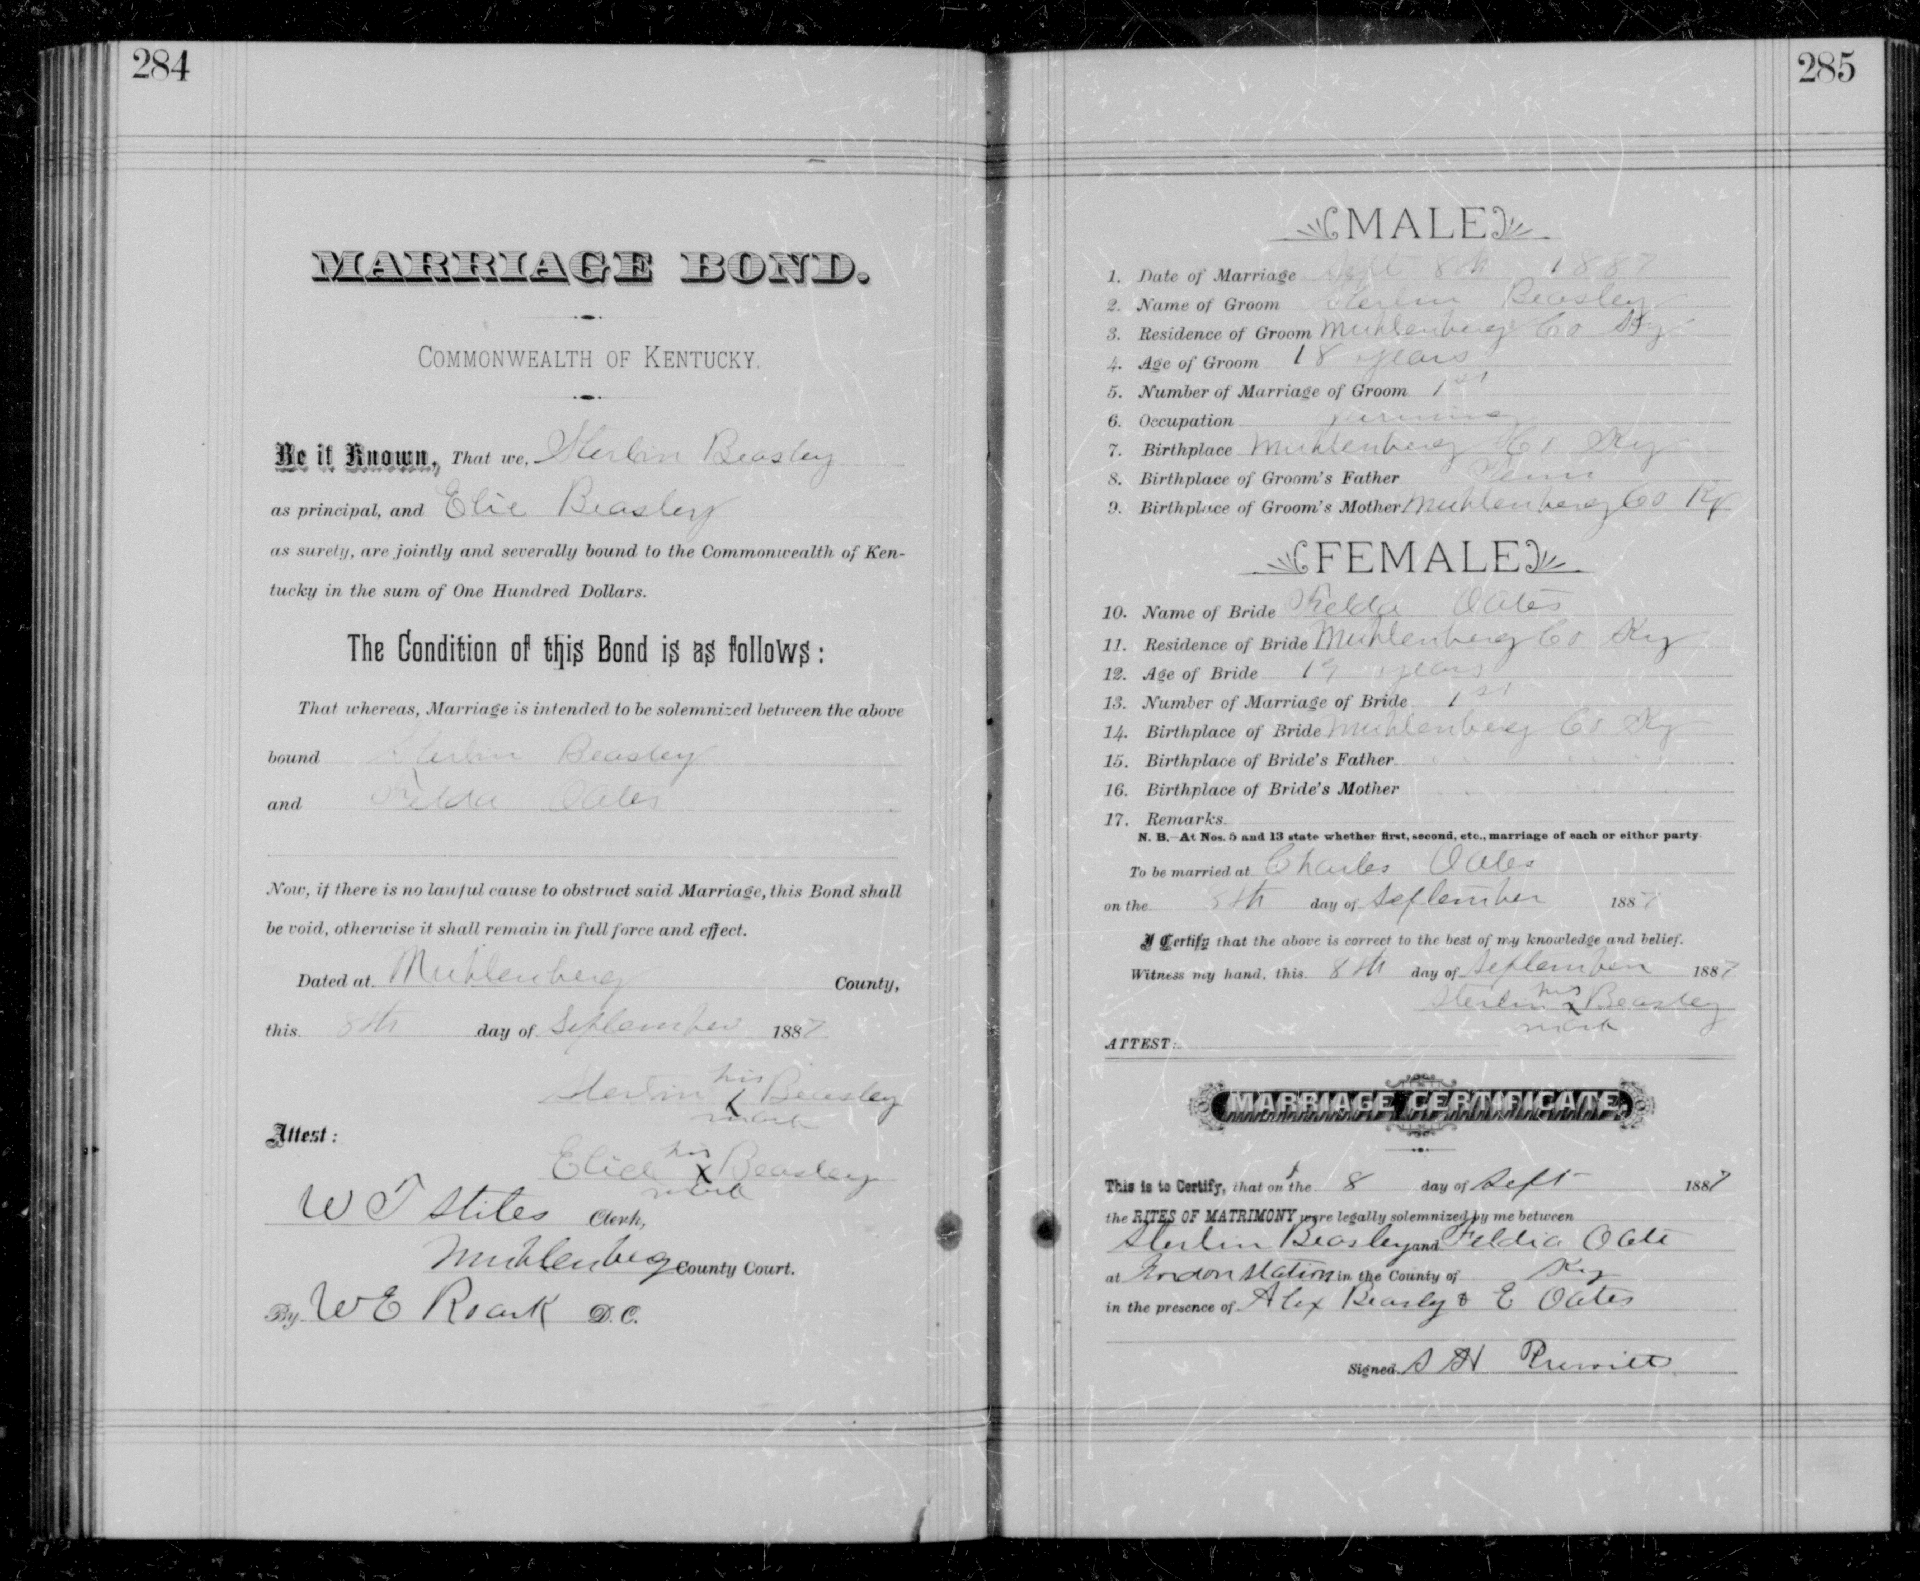 284
MARRIAGE BOND.
COMMONWEALTH OF KENTUCKY.
Be it Known, That we, Sterlin Beasley
as principal, and Elie Beasley
as surety, are jointly and severally bound to the Commonwealth of Ken-
tucky in the sum of One Hundred Dollars.
The Condition of this Bond is as follows:
That whereas, Marriage is intended to be solemnized between the above
bound Sterlin Beasley
and Felda Oates
Now, if there is no lawful cause to obstruct said Marriage, this Bond shall
be void, otherwise it shall remain in full force and effect.
Dated at Muhlenberg County,
this 8th day of September 1887
Sterlin his x Beasley
mark
Attest:
Elie his x Beasley
mark
W T Stiles Clerk,
Muhlenberg County Court.
By W E Roark D. C.
285
MALE
1. Date of Marriage Sept 8th 1887
2. Name of Groom Sterlin Beasley
3. Residence of Groom Muhlenberg Co Ky
4. Age of Groom 18 years
5. Number of Marriage of Groom 1st
6. Occupation farming
7. Birthplace Muhlenberg Co Ky
8. Birthplace of Groom's Father Tenn
9. Birthplace of Groom's Mother Muhlenberg Co Ky
FEMALE
10. Name of Bride Felda Oates
11. Residence of Bride Muhlenberg Co Ky
12. Age of Bride 19 years
13. Number of Marriage of Bride 1st
14. Birthplace of Bride Muhlenberg Co Ky
15. Birthplace of Bride's Father
16. Birthplace of Bride's Mother
17. Remarks
N. B.—At Nos. 5 and 13 state whether first, second, etc., marriage of each or either party
To be married at Charles Oates
on the 8th day of September 1887
I Certify that the above is correct to the best of my knowledge and belief.
Witness my hand, this 8th day of September 1887
Sterlin his x Beasley
mark
ATTEST:
MARRIAGE CERTIFICATE.
This is to Certify, that on the 8 day of Sept 1887
the RITES OF MATRIMONY were legally solemnized by me between
Sterlin Beasley and Feldia Oate
at Gordon Station in the County of Ky
in the presence of Alex Beasly & E Oates
Signed S H Prewitt